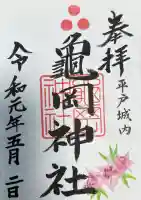 奉拝
平戸城内
亀岡神社
令和元年五月二日